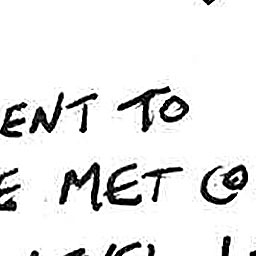 ENT TO
E MET CO